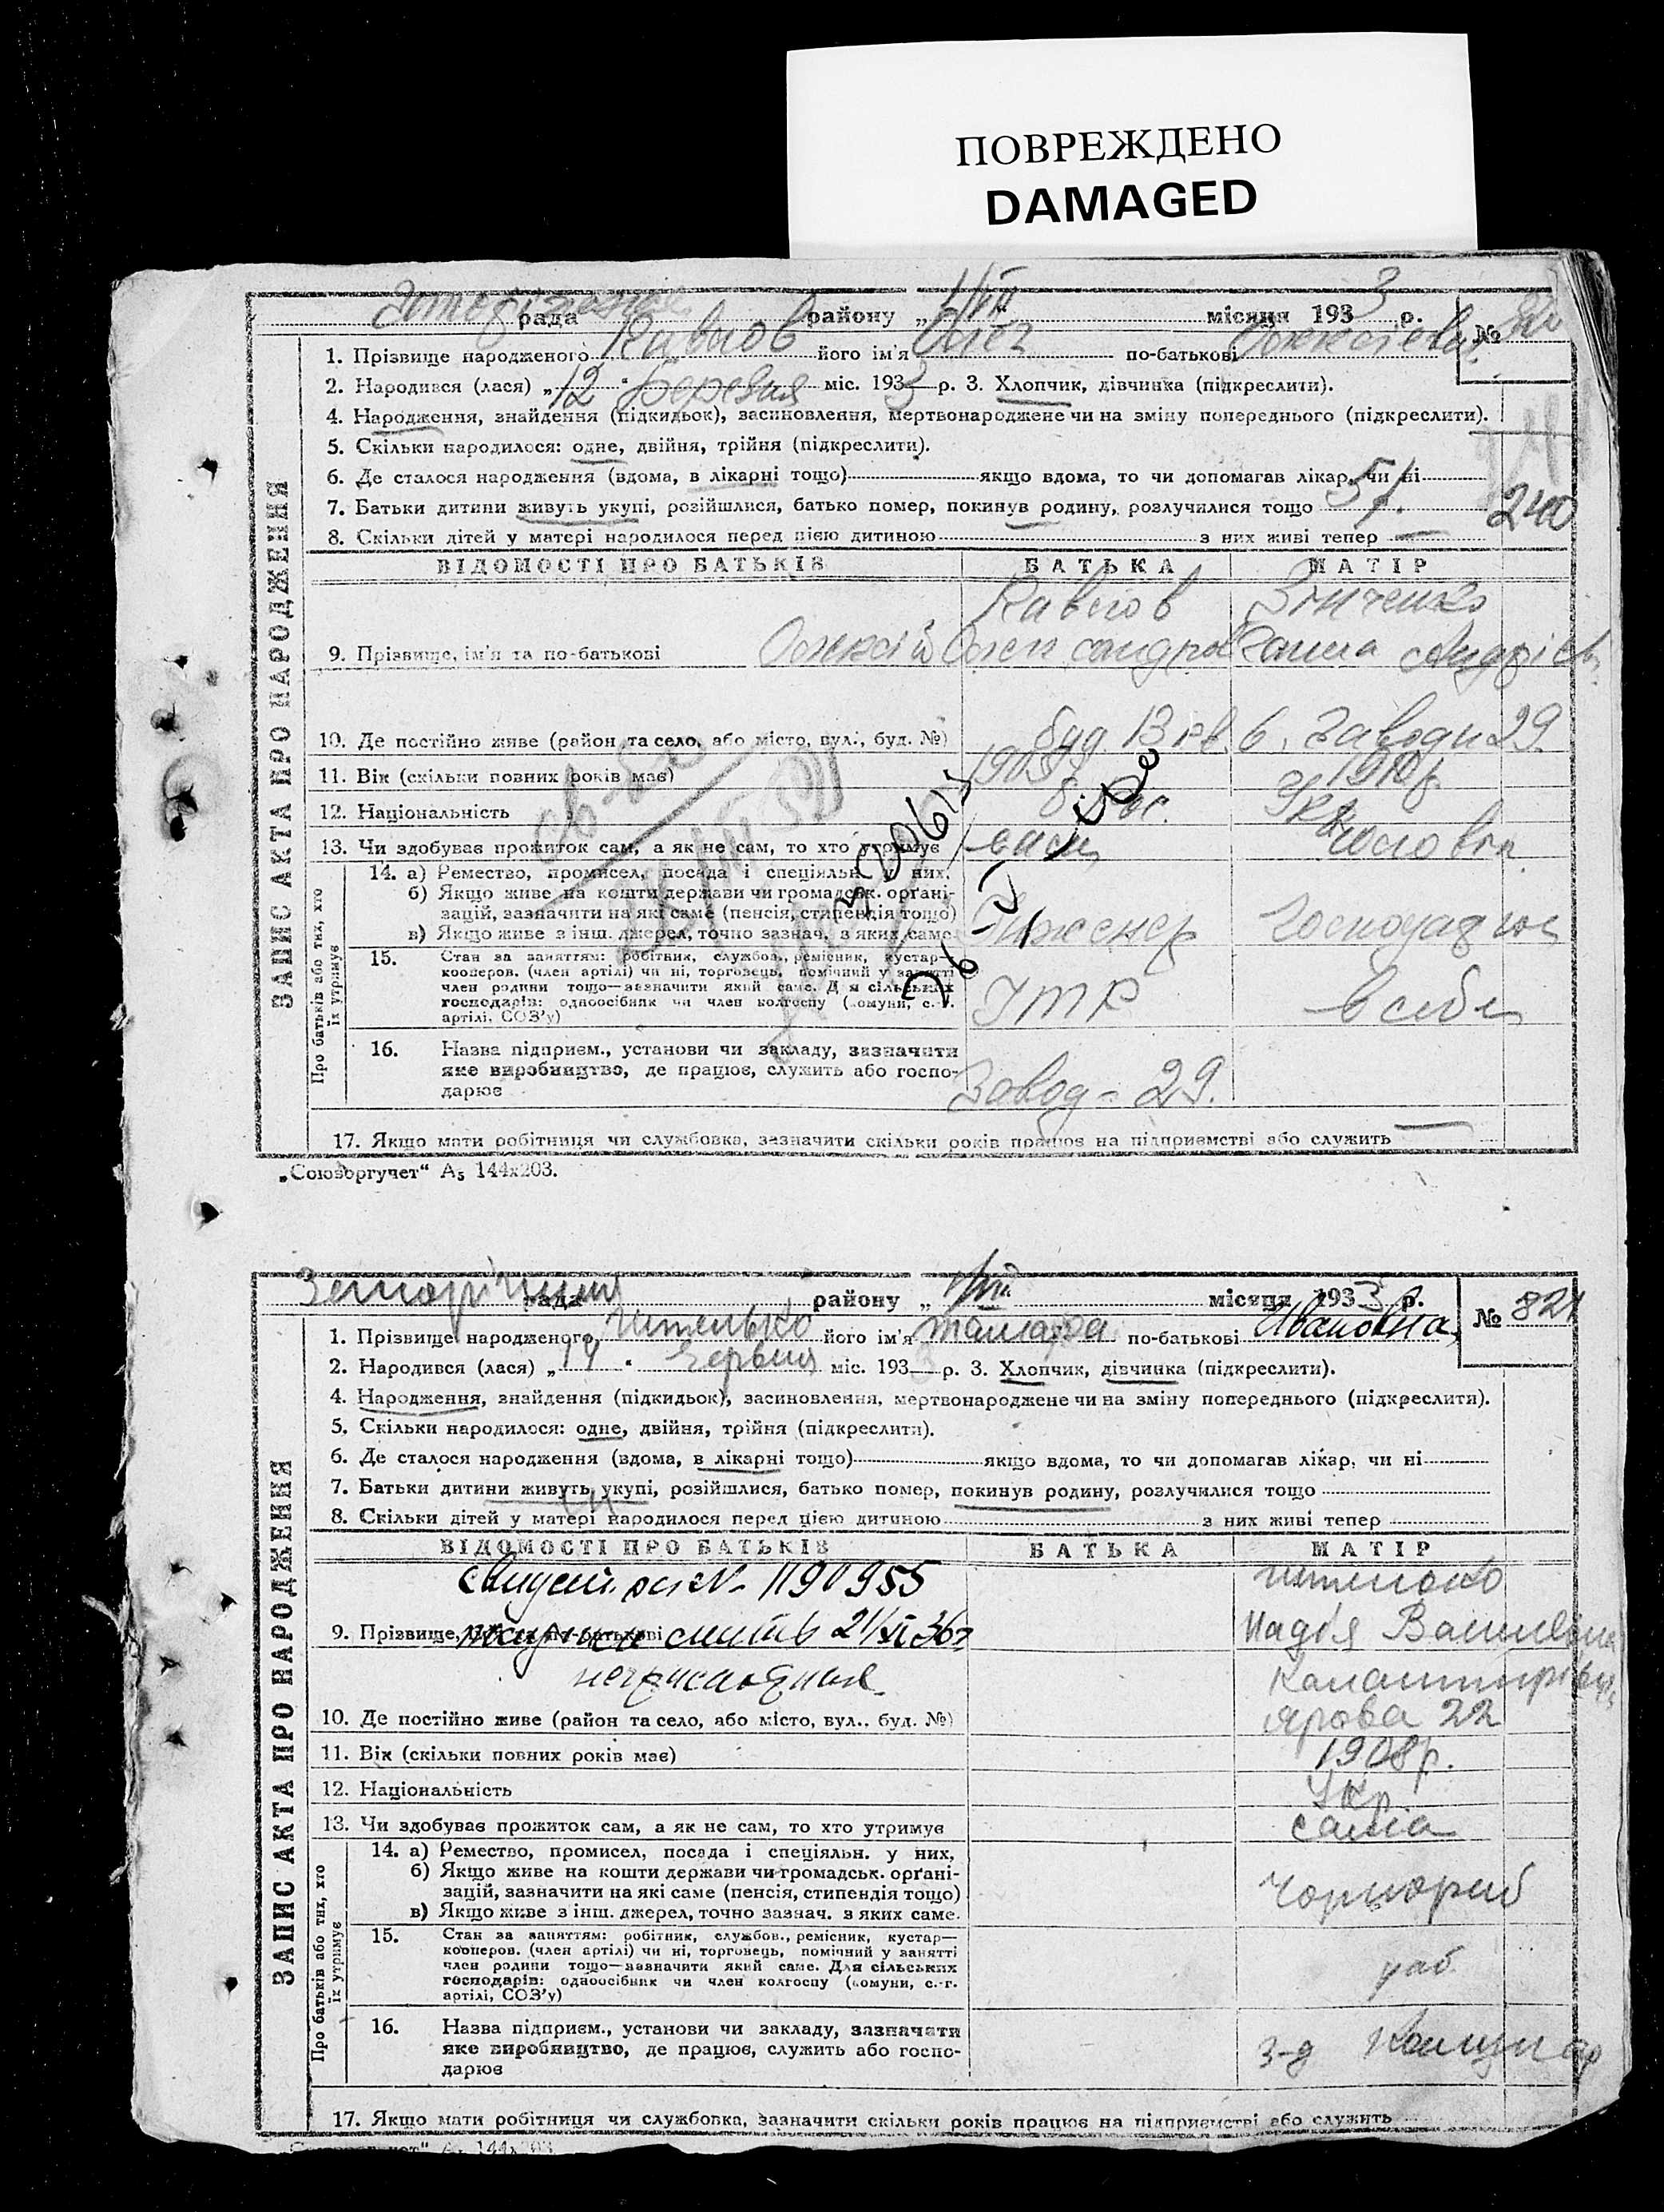 ПОВРЕЖДЕНО
DAMAGED
рада району „ 1/VII місяця 1933 р.
№
1. Прізвище народженого Кавнов його ім'я Олег по-батькові
2. Народився (лася) „12" березня міс. 1933 р. 3. Хлопчик, дівчинка (підкреслити).
4. Народження, знайдення (підкидьок), засиновлення, мертвонароджене чи на зміну попереднього (підкреслити).
5. Скільки народилося: одне, двійня, трійня (підкреслити).
6. Де сталося народження (вдома, в лікарні тощо) якщо вдома, то чи допомагав лікар, чи ні
7. Батьки дитини живуть укупі, розійшлися, батько помер, покинув родину, розлучилися тощо
240
8. Скільки дітей у матері народилося перед цією дитиною з них живі тепер —
ЗАПИС АКТА ПРО НАРОДЖЕННЯ
ВІДОМОСТІ ПРО БАТЬКІВ БАТЬКА МАТІР
Кавнов Зінченко
9. Прізвище, ім'я та по-батькові Олексій Олександро Ганна Андріев
10. Де постійно живе (район та село, або місто, вул., буд. №) буд 13 кв 6, Заводи 29.
11. Вік (скільки повних років має) 1905 1910р.
12. Національність Укр
13. Чи здобуває прожиток сам, а як не сам, то хто утримує
Про батьків або тих, хто їх утримує
14. а) Ремество, промисел, посада і спеціяльн. у них,
б) Якщо живе на кошти держави чи громадськ. орґані-
зацій, зазначити на які саме (пенсія, стипендія тощо)
в) Якщо живе з інш. джерел, точно зазнач. з яких саме.
Інженер
15. Стан за заняттям: робітник, службов., ремісник, кустар—
кооперов. (член артілі) чи ні, торговець, помічний у занятті
член родини тощо—зазначити який саме. Для сільських
господарів: одноосібник чи член колгоспу (комуни, с.-г.
артілі, СОЗ'у)
ІТР
16. Назва підприєм., установи чи закладу, зазначити
яке виробництво, де працює, служить або госпо-
дарює
Завод - 29.
17. Якщо мати робітниця чи службовка, зазначити скільки років працює на підприємстві або служить —
„Союзоргучет" А5 144х203.
рада району „ місяця 1933 р.
№ 821
1. Прізвище народженого його ім'я Тамара по-батькові Ивановна
2. Народився (лася) „14" Червня міс. 193 р. 3. Хлопчик, дівчинка (підкреслити).
4. Народження, знайдення (підкидьок), засиновлення, мертвонароджене чи на зміну попереднього (підкреслити).
5. Скільки народилося: одне, двійня, трійня (підкреслити).
6. Де сталося народження (вдома, в лікарні тощо) якщо вдома, то чи допомагав лікар, чи ні
7. Батьки дитини живуть укупі, розійшлися, батько помер, покинув родину, розлучилися тощо
8. Скільки дітей у матері народилося перед цією дитиною з них живі тепер
ЗАПИС АКТА ПРО НАРОДЖЕННЯ
ВІДОМОСТІ ПРО БАТЬКІВ БАТЬКА МАТІР
№ 1190955
9. Прізвище, ім'я та по-батькові 21/XI 36г Надія Василівна
10. Де постійно живе (район та село, або місто, вул., буд. №) Ярова 22
11. Вік (скільки повних років має) 1908р.
12. Національність Укр
13. Чи здобуває прожиток сам, а як не сам, то хто утримує сама
Про батьків або тих, хто їх утримує
14. а) Ремество, промисел, посада і спеціяльн. у них,
б) Якщо живе на кошти держави чи громадськ. орґані-
зацій, зазначити на які саме (пенсія, стипендія тощо)
в) Якщо живе з інш. джерел, точно зазнач. з яких саме.
Чорнороб
15. Стан за заняттям: робітник, службов., ремісник, кустар—
кооперов. (член артілі) чи ні, торговець, помічний у занятті
член родини тощо—зазначити який саме. Для сільських
господарів: одноосібник чи член колгоспу (комуни, с.-г.
артілі, СОЗ'у)
роб
16. Назва підприєм., установи чи закладу, зазначити
яке виробництво, де працює, служить або госпо-
дарює
з-д Комунар
17. Якщо мати робітниця чи службовка, зазначити скільки років працює на підприємстві або служить